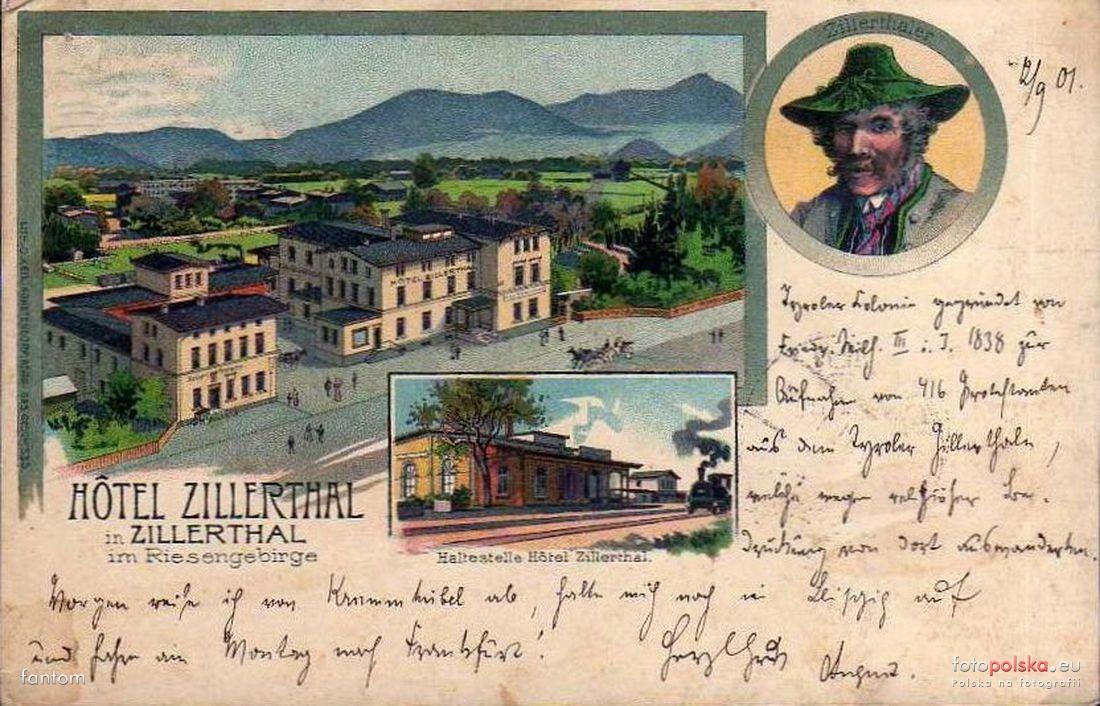 Zillerthaler
2/9 01.
HÔTEL ZILLERTHAL
Tyroler Colonie gegründet von
Friedr. Wilh. III i. J. 1838 zur
Aufnahme von 416 Protestanten
aus dem Tyroler Zillerthale,
welche wegen religiöser Be-
drückung von dort auswanderten.
HÔTEL ZILLERTHAL
in ZILLERTHAL
im Riesengebirge
Haltestelle Hôtel Zillerthal.
Morgen reise ich von Krummhübel ab, halte mich noch in auf
und fahre am Montag nach Frankfurt!
Herzl Gruß August.
fantom
fotopolska.eu
Polska na fotografii